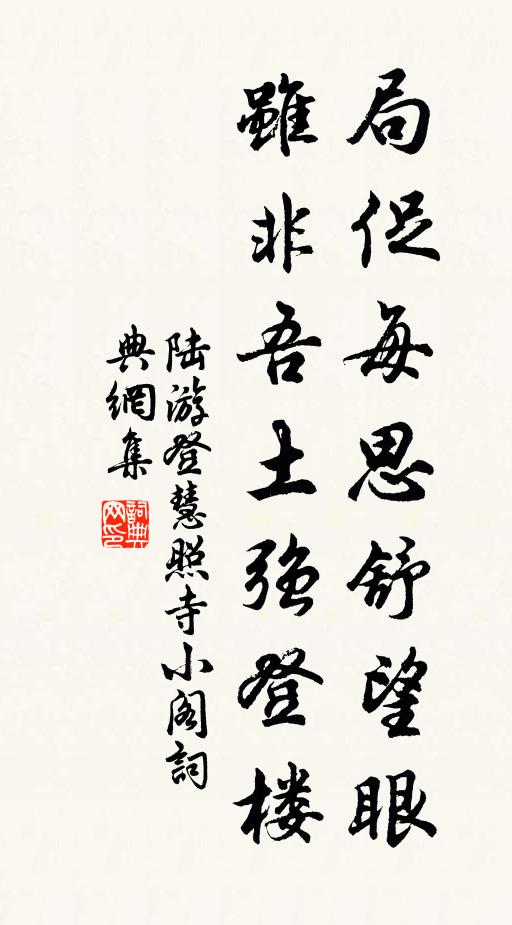 局促每思舒望眼
雖非吾土強登楼
陆游登慧照寺小阁詞
典網集
詞典
网印